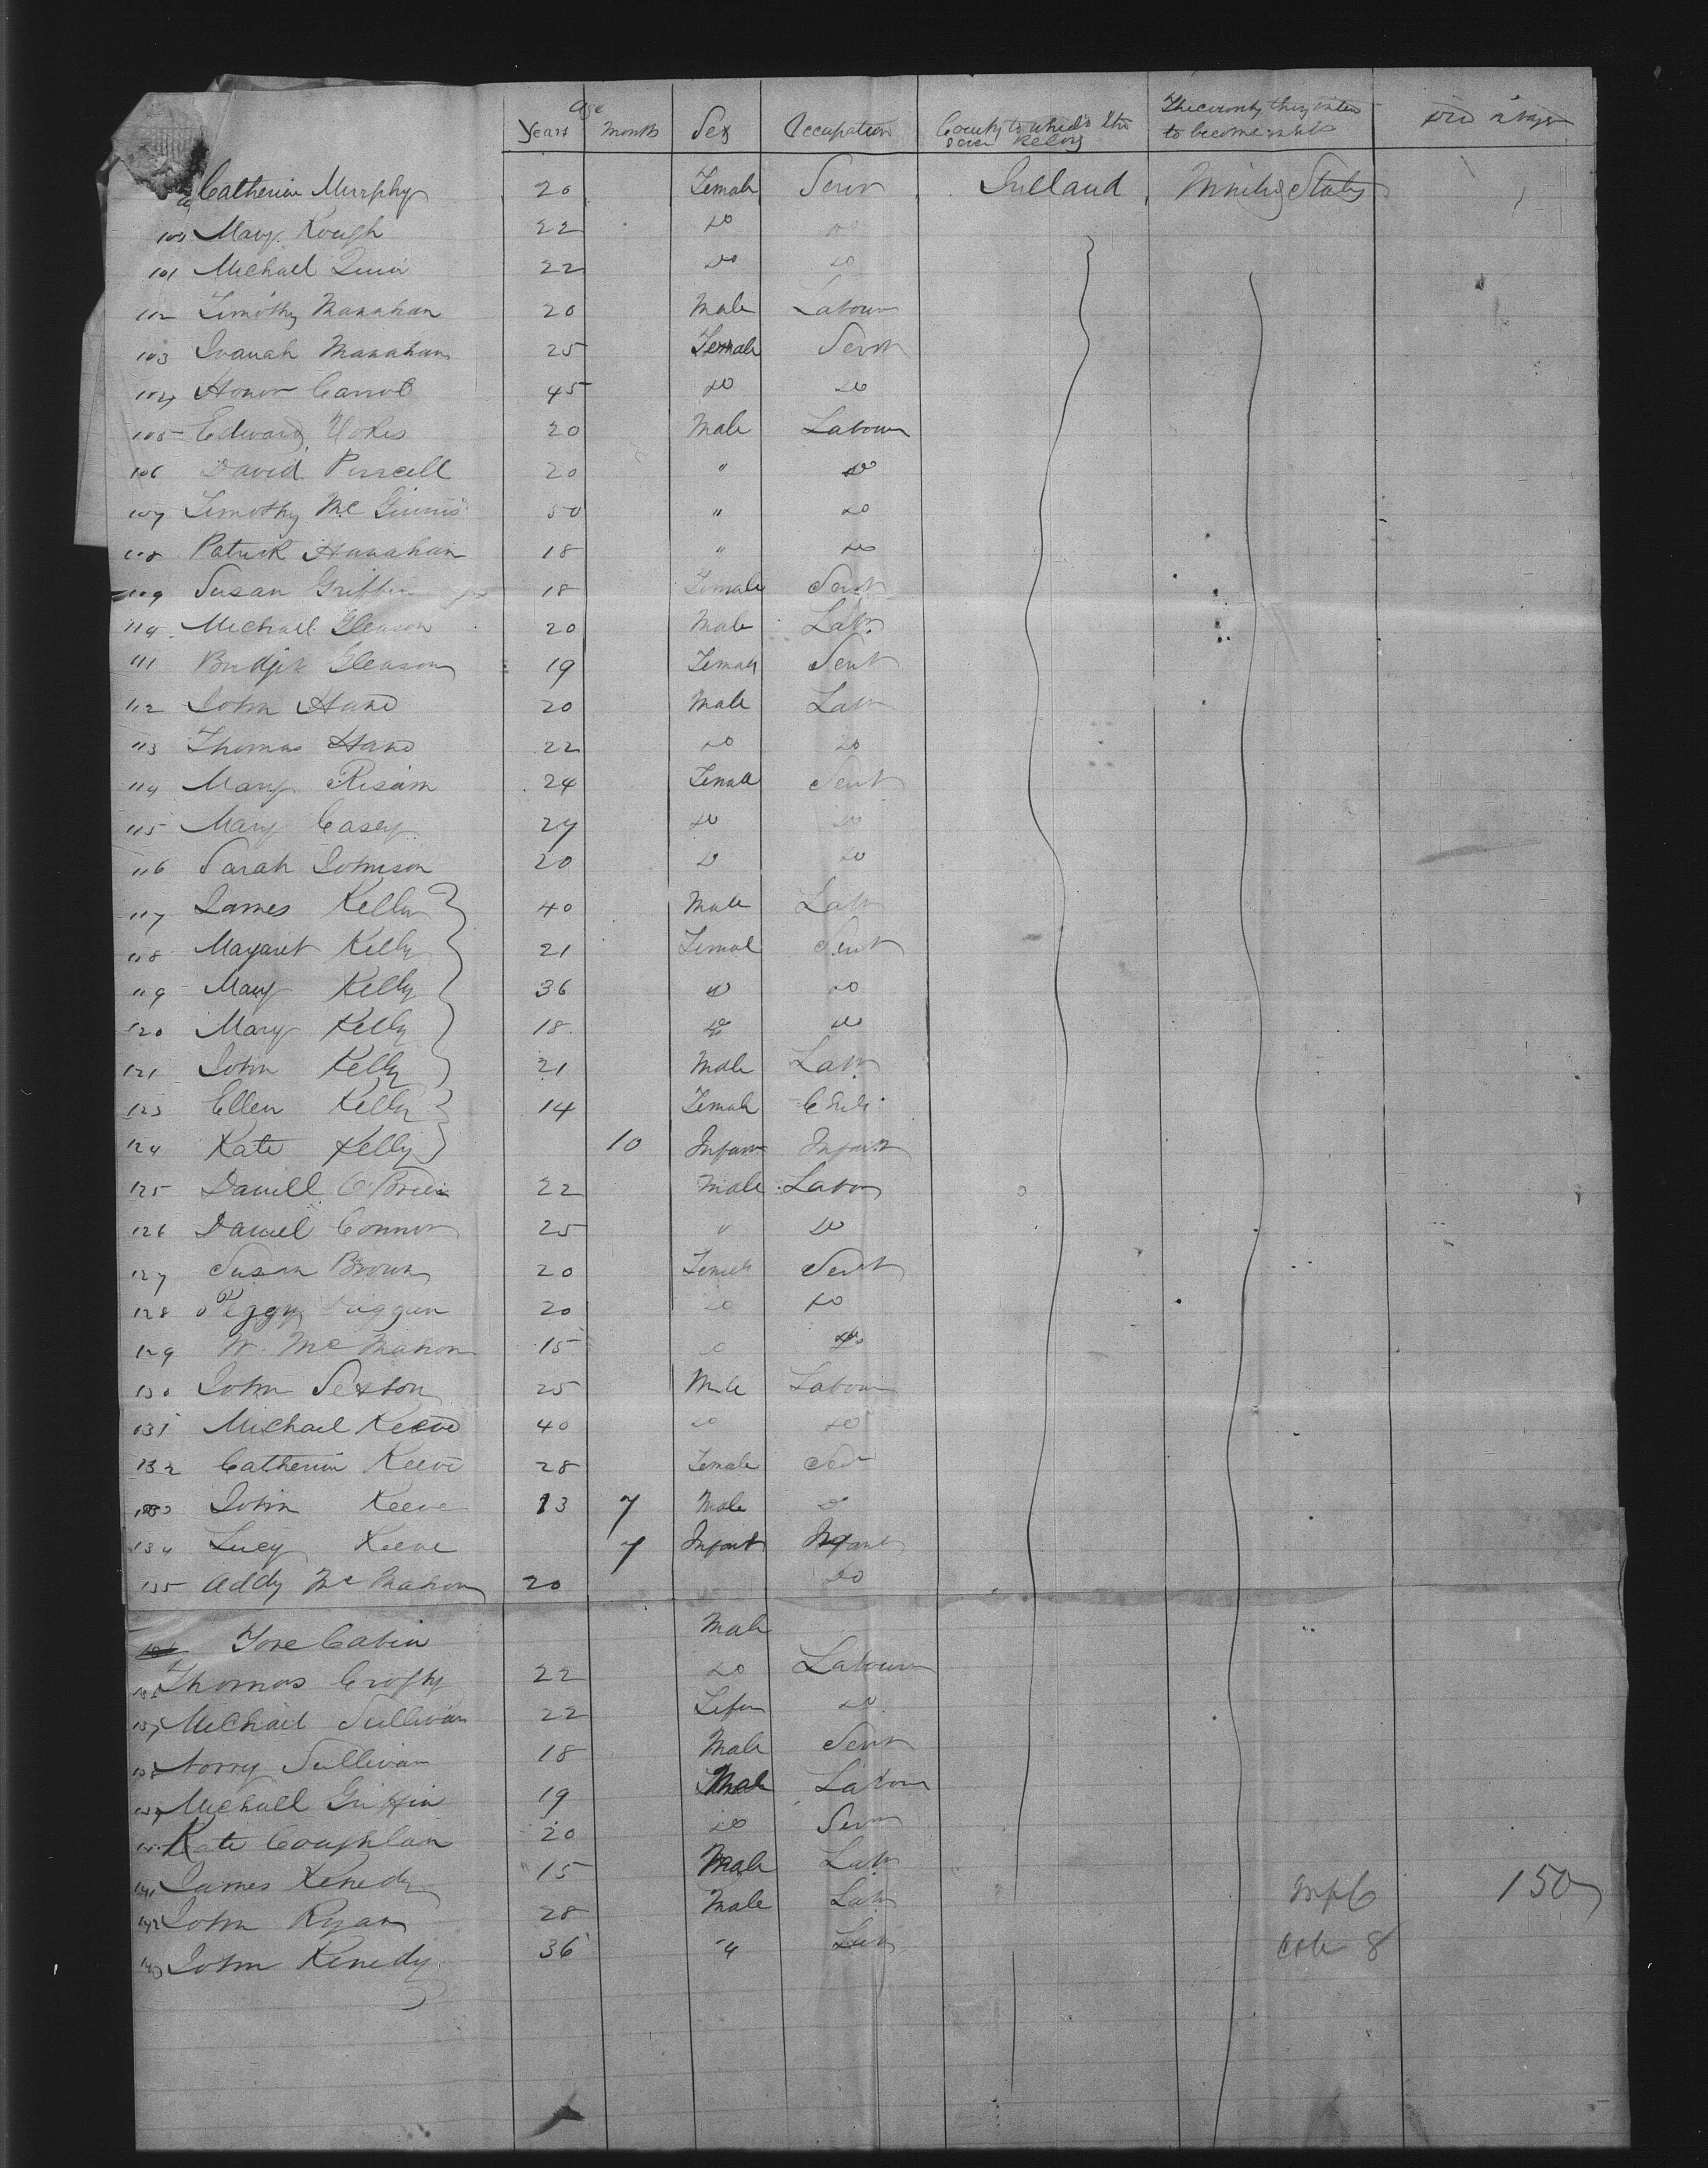 Age
Years Months Sex Occupation County to which the Belong The country they inten to become
Catherin Murrphy 20 Female Serv Irelland United States
100 Mary Keough 22 do do
101 Michall Quin 22 do do
102 Timothy Manahan 20 Male Labour
103 Manahan 25 Female Servt
104 Honor Carrol 45 do do
105 Edward 20 Male Labour
106 David Purcell 20 " do
107 Timothy Mc Ginnis 50 " do
108 Patrick Hanahan 18 " do
109 Susan Griffin 18 Female Servt
110 Michall Gleason 20 Male Labr
111 Bridjet Gleason 19 Female Servt
112 John Hand 20 Male Labr
113 Thomas Hand 22 do do
114 Mary 24 Femall Servt
115 Mary Casey 27 do do
116 Sarah Johnson 20 do do
117 James Kelly 40 Male Labr
118 Margaret Kelly 21 Femal Servt
119 Mary Kelly 36 do do
120 Mary Kelly 18 do do
121 John Kelly 21 Male Labr
123 Ellen Kelly 14 Female Child
124 Kate Kelly 10 Infant Infant
125 Daniell O'Brien 22 Male Labor
126 Daniel Connor 25 " do
127 Susan Brown 20 Female Servt
128 Peggy 20 do do
129 Mc Mahon 15 do do
130 John Sexton 25 Male Labour
131 Michael Keeve 40 do do
132 Catherin Keeve 28 Female
133 John Keeve 13 7 Male do
134 Lucy Keeve 7 Infant Infant
135 Addy Mc Mahon 20 do
Fore Cabin Male
136 Thomas 22 do Labour
137 Michail Sullivan 22 do
138 Norry Sullivan 18 Male Servt
139 Michall Griffin 19 Male Labour
140 Kate Coughlan 20 do Serv
141 James Kenedy 15 Male Labr
142 John Ryan 28 Male Labr 150
143 John Kenedy 36 " Labr 8